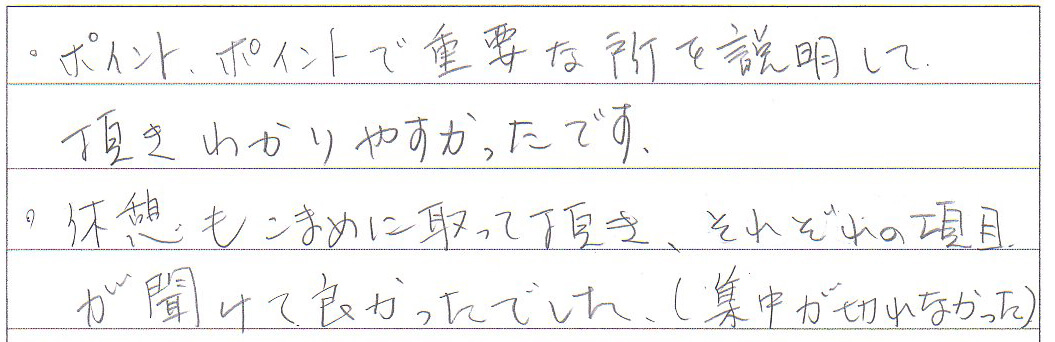 ・ポイント、ポイントで重要な所を説明して
頂きわかりやすかったです。
・休憩もこまめに取って頂き、それぞれの項目
が聞けて良かったでした、(集中が切れなかった)